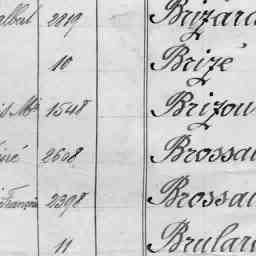 albert 2019 Bizard
10 Brizé
is Me 1548 Brizou
iré 2508 Brossa
François 2398 Brossa
11 Brular